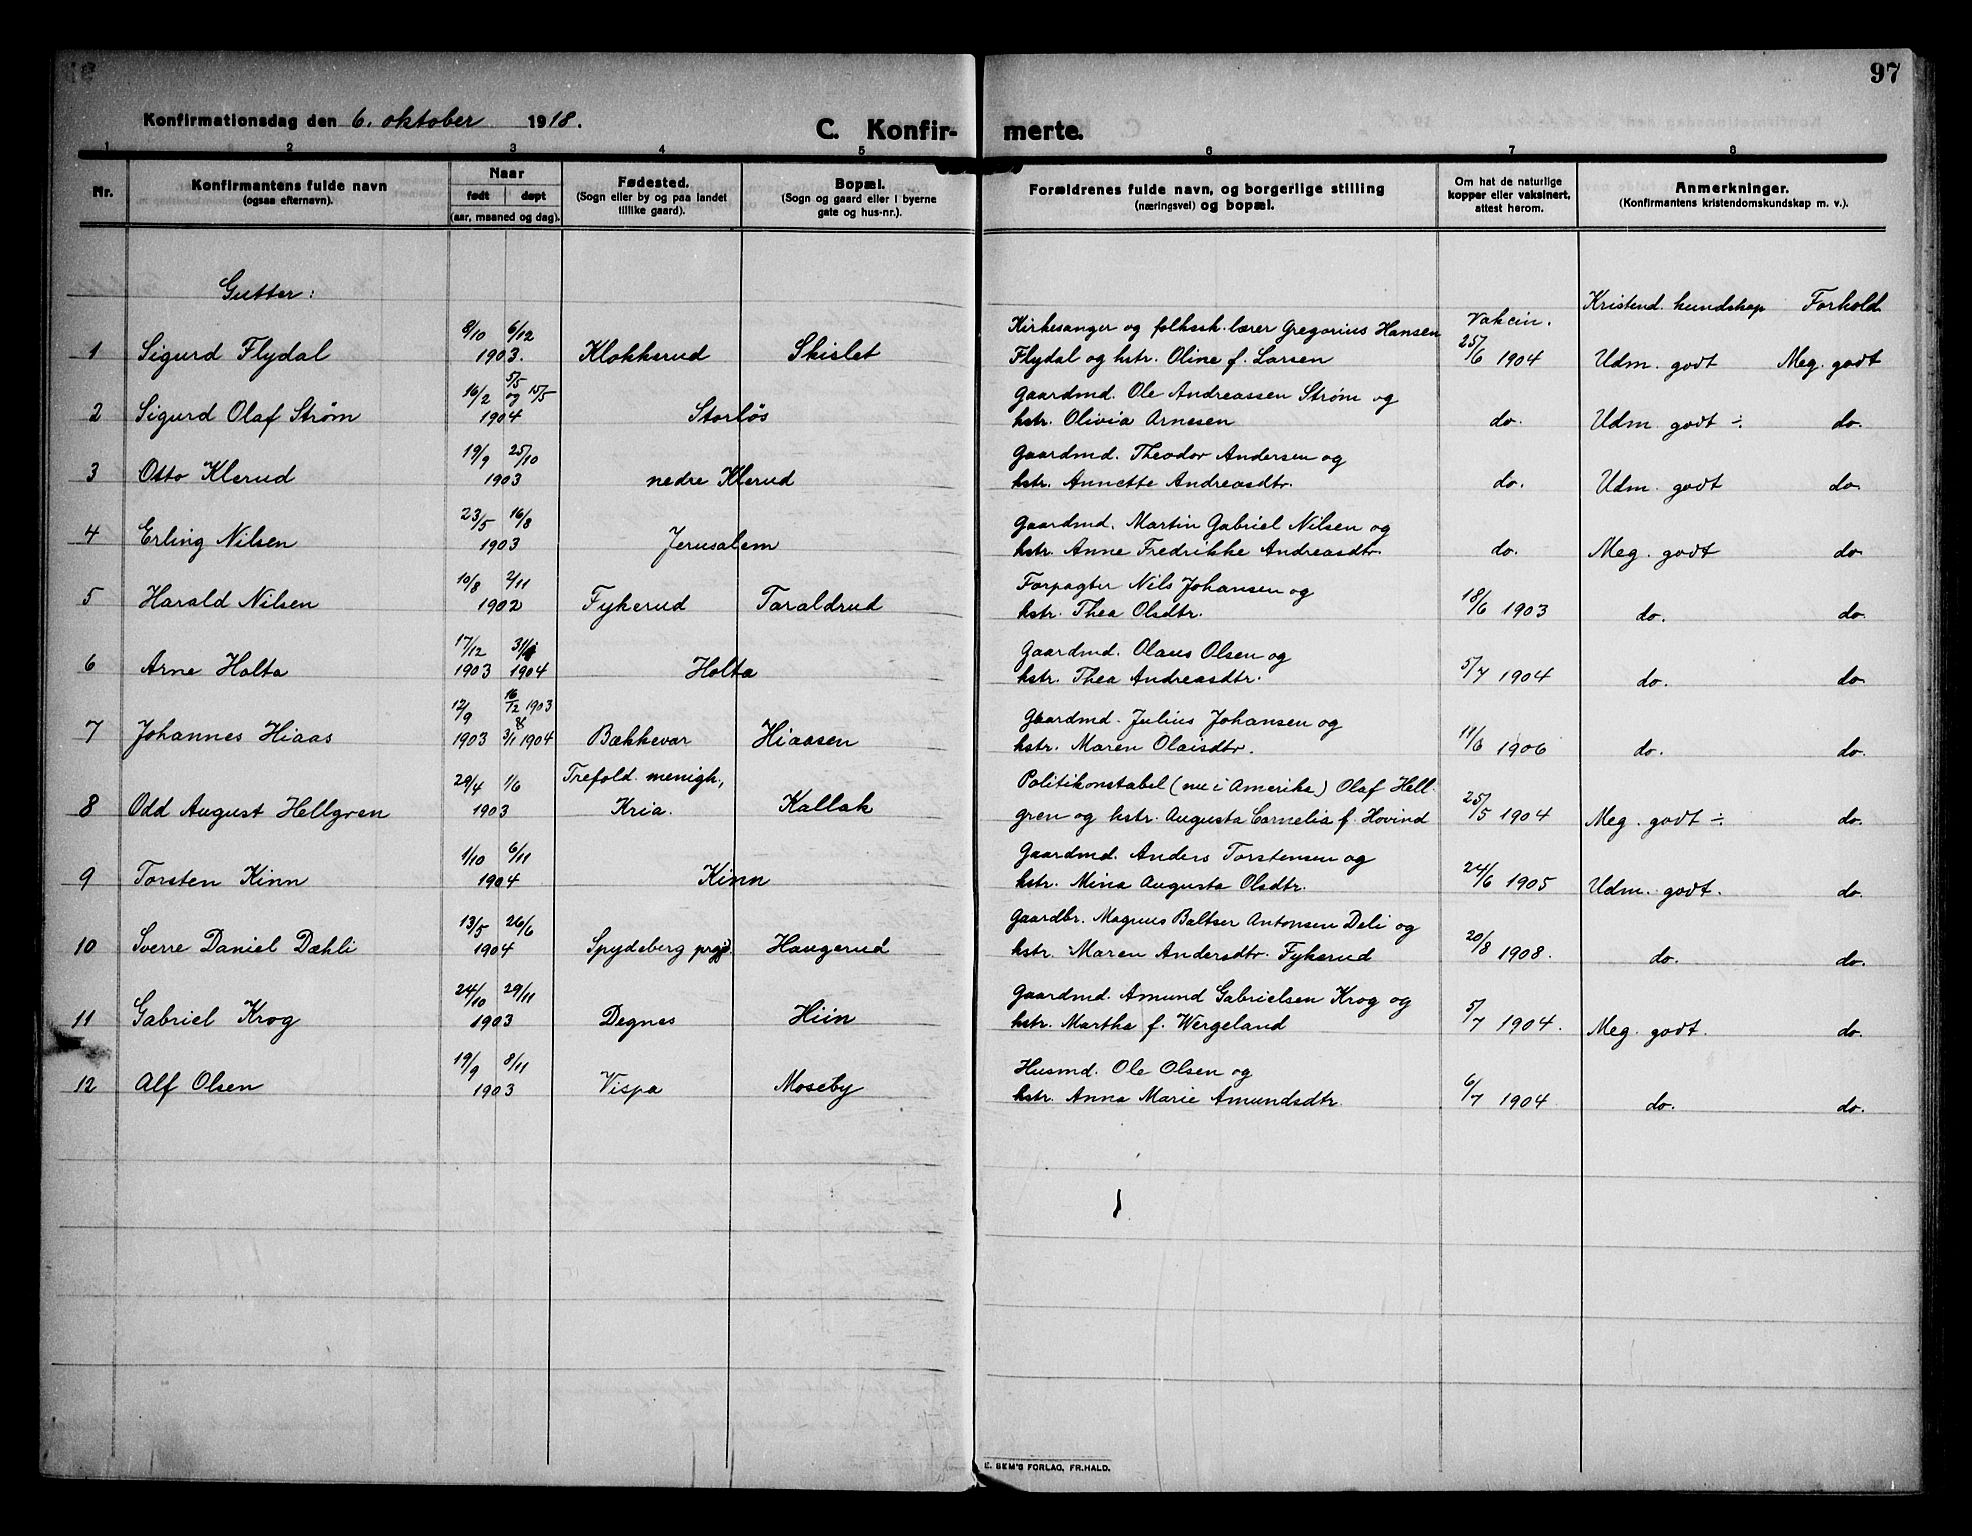 97
Konfirmationsdag den 6. oktober 1918.
C. Konfir- merte.
1 2 3 4 5 6 7 8
Nr.
Konfirmantens fulde navn
(ogsaa efternavn).
Naar
født døpt
(aar, maaned og dag).
Fødested.
(Sogn eller by og paa landet
tillike gaard).
Bopæl.
(Sogn og gaard eller i byerne
gate og hus-nr.).
Forældrenes fulde navn, og borgerlige stilling
(næringsvei) og bopæl.
Om hat de naturlige
kopper eller vaksinert,
attest herom.
Anmerkninger.
(Konfirmantens kristendomskundskap m. v.).
Gutter:
Kristend. kundskap Forhold
8/10 6/12 Kirkesanger og folkssk. lærer Gregorius Hansen Vakcin.
1 Sigurd Flydal 1903. Klokkerud Skislet Flydal og hstr. Oline f. Larsen 25/6 1904 Udm. godt Meg. godt
16/2 5/5 og 15/5 Gaardmd. Ole Andreassen Strøm og
2 Sigurd Olaf Strøm 1904 Storløs hstr. Olivia Arnesen do. Udm. godt ÷ do.
19/9 25/10 Gaardmd. Theodor Andersen og
3 Otto Klerud 1903 nedre Klerud hstr. Annette Andreasdtr. do. Udm. godt do.
23/5 16/8 Gaardmd. Martin Gabriel Nilsen og
4 Erling Nilsen 1903 Jerusalem hstr. Anne Fredrikke Andreasdtr. do. Meg. godt do.
10/8 2/11 Forpagter Nils Johansen og
5 Harald Nilsen 1902 Fykerud Taraldrud hstr. Thea Olsdtr. 18/6 1903 do. do.
17/12 31/1 Gaardmd. Olaus Olsen og
6 Arne Holta 1903 1904 Holta hstr. Thea Andreasdtr. 5/7 1904 do. do.
12/9 16/12 1903 & Gaardmd. Julius Johansen og
7 Johannes Hiaas 1903 3/1 1904 Bækkevar Hiaasen hstr. Maren Olaisdtr. 11/6 1906 do. do.
29/4 1/6 Trefold. menigh., Politikonstabel (nu i Amerika) Olaf Hell-
8 Odd August Hellgren 1903 Kria. Kallak gren og hstr. Augusta Cornelia f. Hovind 25/5 1904 Meg. godt ÷ do.
1/10 6/11 Gaardmd. Anders Torstensen og
9 Torsten Kinn 1904 Kinn hstr. Mina Augusta Olsdtr. 24/6 1905 Udm. godt. do.
13/5 26/6 Gaardbr. Magnus Baltser Antonsen Deli og
10 Sverre Daniel Dæhli 1904 Spydeberg prgjd. Haugerud hstr. Maren Andersdtr. Fykerud 20/8 1908. do. do.
24/10 29/11 Gaardmd. Amund Gabrielsen Krog og
11 Gabriel Krog 1903 Degnes Hiin hstr. Martha f. Wergeland 5/7 1904. Meg. godt. do.
19/9 8/11 Husmd. Ole Olsen og
12 Alf Olsen 1903 Vispa Moseby hstr. Anna Marie Amundsdtr. 6/7 1904. do. do.
E. SEM'S FORLAG, FR.HALD.